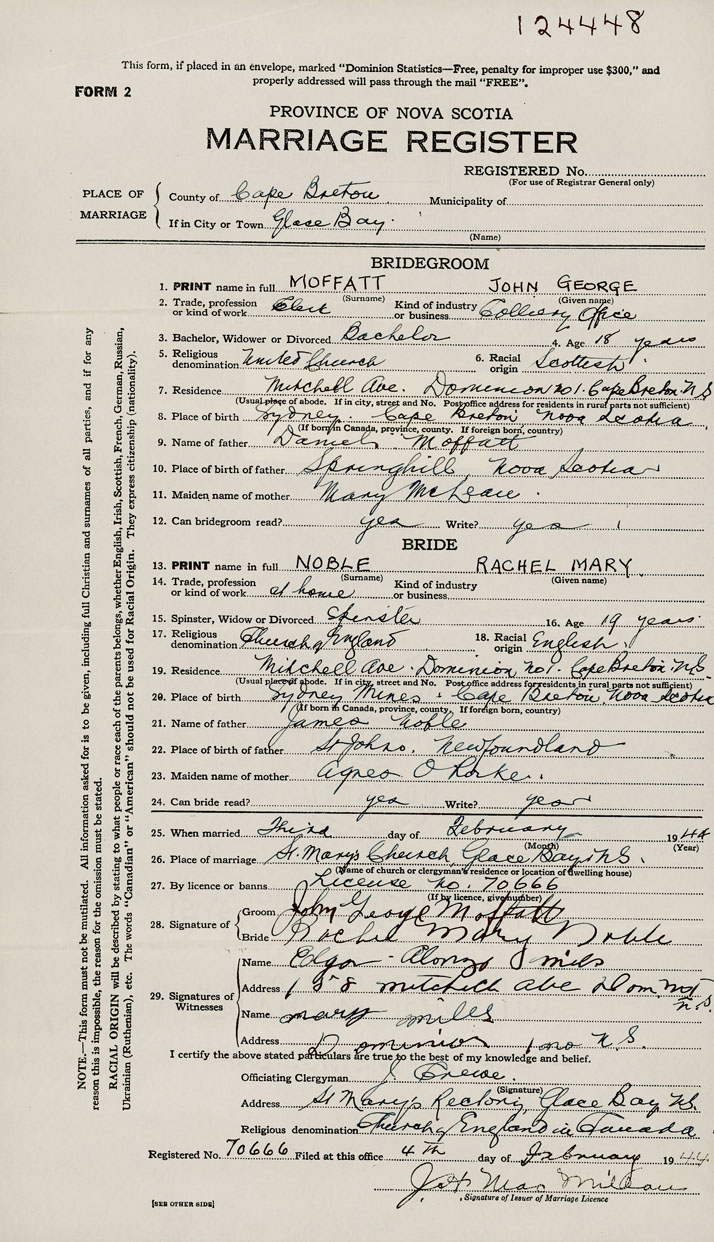 124448
This form, if placed in an envelope, marked "Dominion Statistics—Free, penalty for improper use $300," and
properly addressed will pass through the mail "FREE".
FORM 2
PROVINCE OF NOVA SCOTIA
MARRIAGE REGISTER
REGISTERED No.
(For use of Registrar General only)
PLACE OF MARRIAGE
County of Cape Breton Municipality of
If in City or Town Glace Bay.
(Name)
BRIDEGROOM
1. PRINT name in full MOFFATT JOHN GEORGE
(Surname) (Given name)
2. Trade, profession or kind of work Clerk Kind of industry or business Colliery Office
3. Bachelor, Widower or Divorced Bachelor 4. Age 18 years
5. Religious denomination United Church 6. Racial origin Scottish
7. Residence Mitchell Ave. Dominion No 1. Cape Breton N.S
(Usual place of abode. If in city, street and No. Post office address for residents in rural parts not sufficient)
8. Place of birth Sydney Cape Breton Nova Scotia
(If born in Canada, province, county. If foreign born, country)
9. Name of father Daniel Moffatt
10. Place of birth of father Springhill, Nova Scotia
11. Maiden name of mother Mary McLean
12. Can bridegroom read? yes Write? yes
BRIDE
13. PRINT name in full NOBLE RACHEL MARY
(Surname) (Given name)
14. Trade, profession or kind of work at home Kind of industry or business
15. Spinster, Widow or Divorced Spinster 16. Age 19 years.
17. Religious denomination Church of England 18. Racial origin English.
19. Residence Mitchell Ave. Dominion No 1. Cape Breton N.S
(Usual place of abode. If in city, street and No. Post office address for residents in rural parts not sufficient)
20. Place of birth Sydney Mines. Cape Breton Nova Scotia
(If born in Canada, province, county. If foreign born, country)
21. Name of father James Noble
22. Place of birth of father St Johns, Newfoundland
23. Maiden name of mother Agnes O'Rorke.
24. Can bride read? yes Write? yes
25. When married Third day of February 1944
(Month) (Year)
26. Place of marriage St. Mary's Church, Glace Bay N.S.
(Name of church or clergyman's residence or location of dwelling house)
27. By licence or banns License no. 70666
(If by licence, give number)
28. Signature of
Groom John George Moffatt
Bride Rachel Mary Noble
29. Signatures of Witnesses
Name Edgar Alonzo
Address 158 Mitchell ave Dom N.S.
Name mary miles
Address Dominion no N.S.
I certify the above stated particulars are true to the best of my knowledge and belief.
Officiating Clergyman J. Crewe.
(Signature)
Address St Mary's Rectory, Glace Bay N.S.
Religious denomination Church of England in Canada
Registered No. 70666 Filed at this office 4th day of February 1944
Signature of Issuer of Marriage Licence
[SEE OTHER SIDE]
NOTE.—This form must not be mutilated. All information asked for is to be given, including full Christian and surnames of all parties, and if for any
reason this is impossible, the reason for the omission must be stated.
RACIAL ORIGIN will be described by stating to what people or race each of the parents belongs, whether English, Irish, Scottish, French, German, Russian,
Ukrainian (Ruthenian), etc. The words "Canadian" or "American" should not be used for Racial Origin. They express citizenship (nationality).